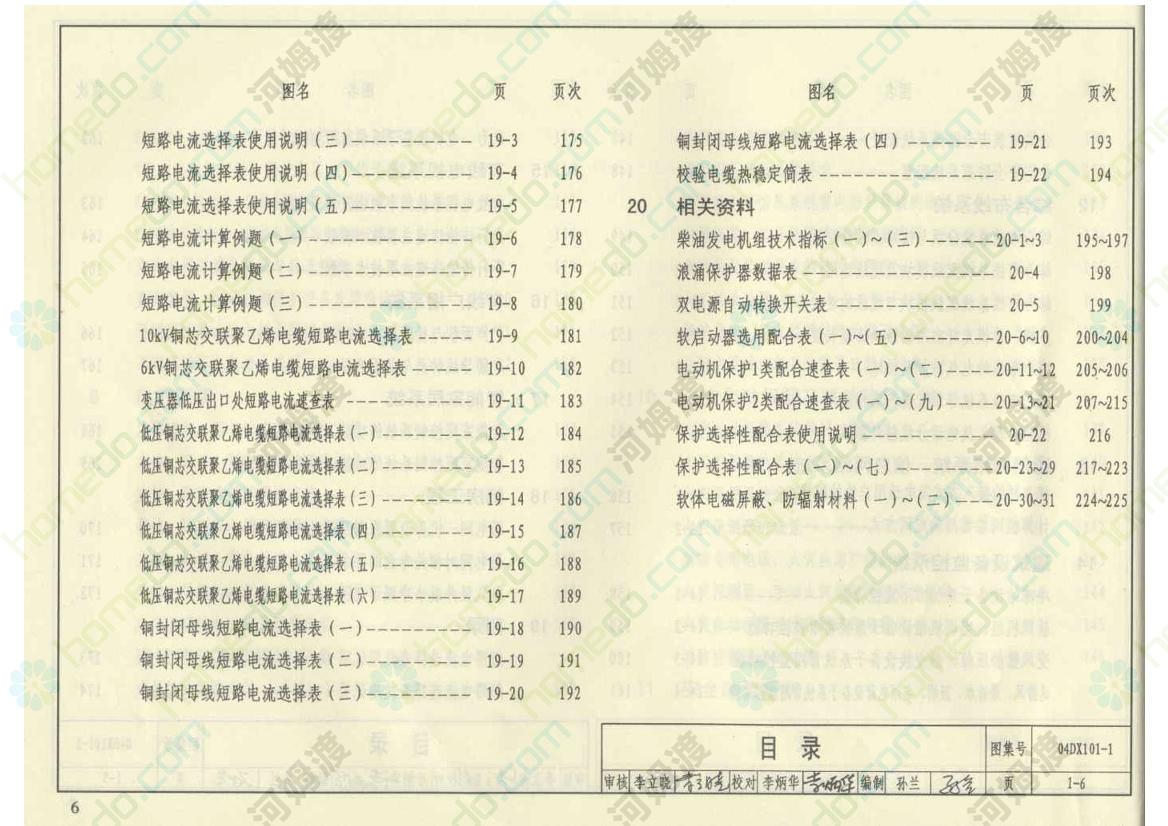 图名 页 页次
短路电流选择表使用说明(三)------------ 19-3 175
短路电流选择表使用说明(四)------------ 19-4 176
短路电流选择表使用说明(五)------------ 19-5 177
短路电流计算例题(一)---------------- 19-6 178
短路电流计算例题(二)---------------- 19-7 179
短路电流计算例题(三)---------------- 19-8 180
10kV铜芯交联聚乙烯电缆短路电流选择表------ 19-9 181
6kV铜芯交联聚乙烯电缆短路电流选择表------ 19-10 182
变压器低压出口处短路电流速查表------------ 19-11 183
低压铜芯交联聚乙烯电缆短路电流选择表(一)--------- 19-12 184
低压铜芯交联聚乙烯电缆短路电流选择表(二)--------- 19-13 185
低压铜芯交联聚乙烯电缆短路电流选择表(三)--------- 19-14 186
低压铜芯交联聚乙烯电缆短路电流选择表(四)--------- 19-15 187
低压铜芯交联聚乙烯电缆短路电流选择表(五)--------- 19-16 188
低压铜芯交联聚乙烯电缆短路电流选择表(六)--------- 19-17 189
铜封闭母线短路电流选择表(一)----------- 19-18 190
铜封闭母线短路电流选择表(二)----------- 19-19 191
铜封闭母线短路电流选择表(三)----------- 19-20 192
图名 页 页次
铜封闭母线短路电流选择表(四)---------- 19-21 193
校验电缆热稳定简表----------------- 19-22 194
20 相关资料
柴油发电机组技术指标(一)~(三)------- 20-1~3 195~197
浪涌保护器数据表------------------ 20-4 198
双电源自动转换开关表--------------- 20-5 199
软启动器选用配合表(一)~(五)--------- 20-6~10 200~204
电动机保护1类配合速查表(一)~(二)----- 20-11~12 205~206
电动机保护2类配合速查表(一)~(九)----- 20-13~21 207~215
保护选择性配合表使用说明------------- 20-22 216
保护选择性配合表(一)~(七)---------- 20-23~29 217~223
软体电磁屏蔽、防辐射材料(一)~(二)---- 20-30~31 224~225
目录 图集号 04DX101-1
审核 李立晓 校对 李炳华 李炳华 编制 孙兰 孙兰 页 1-6
6
河姆渡
homedo.com